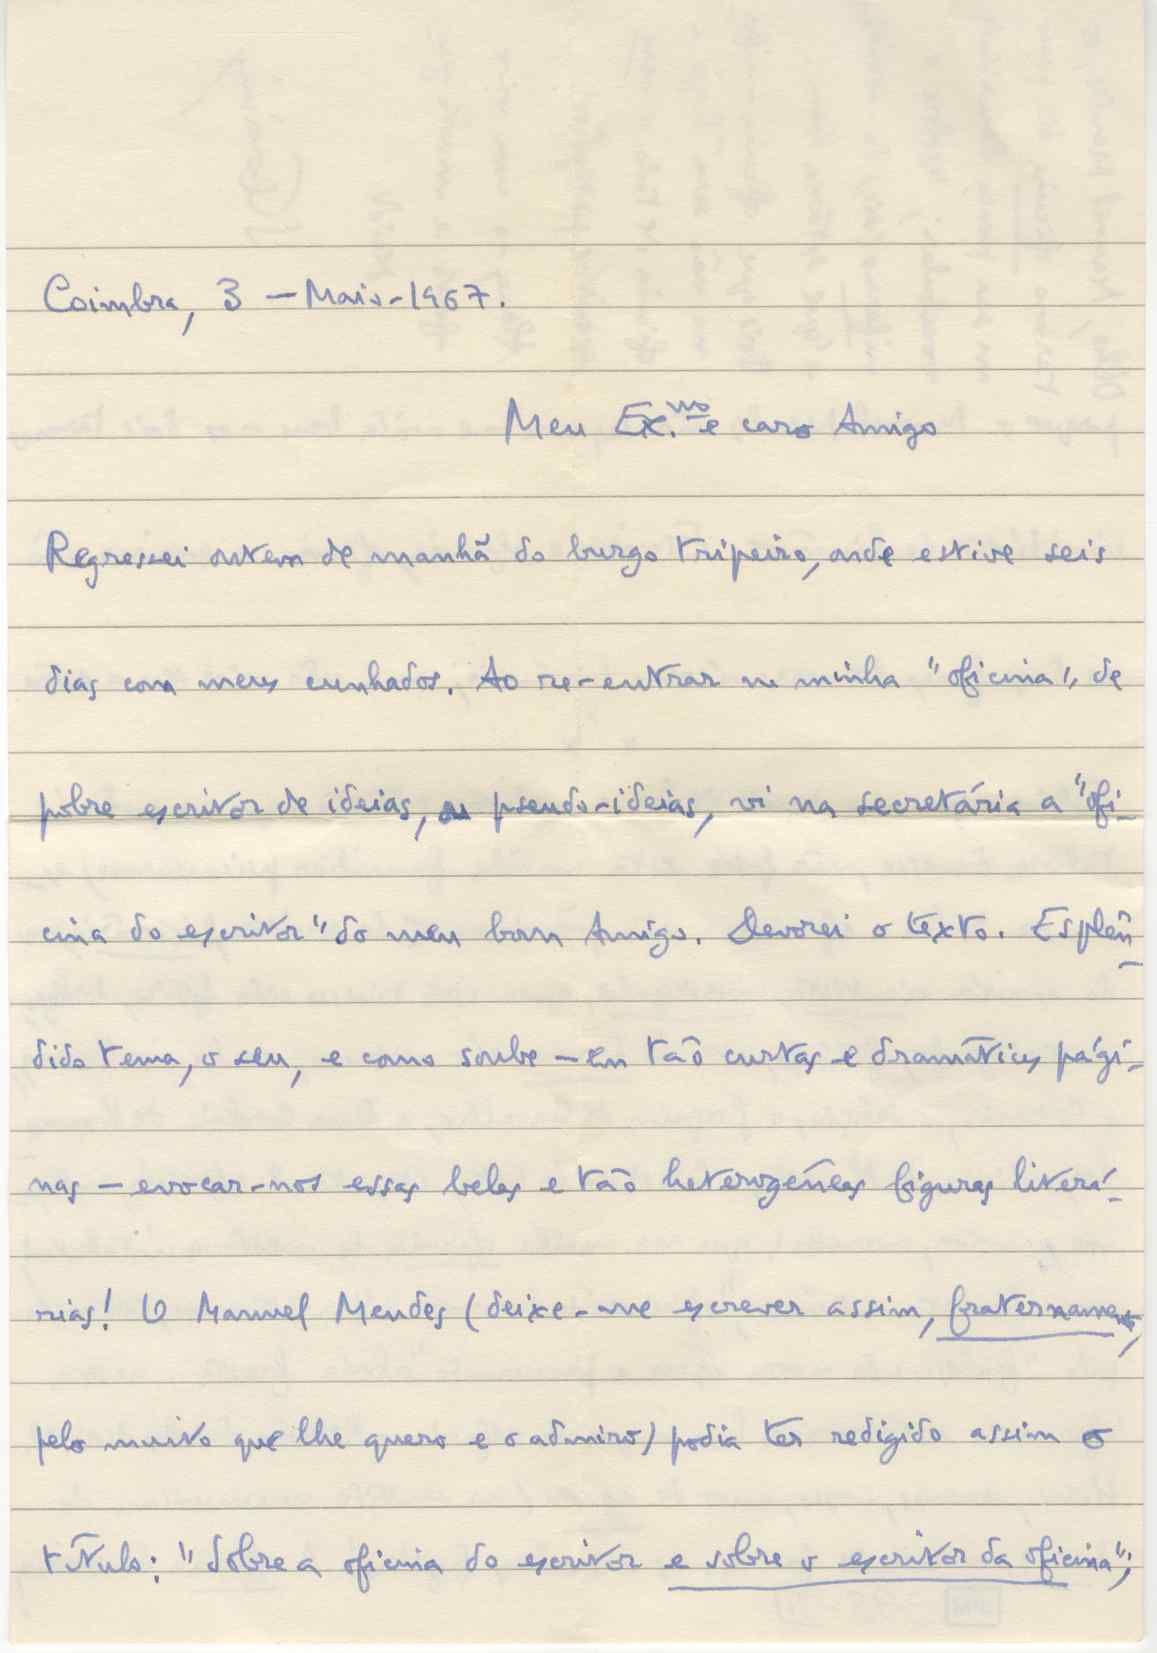 Coimbra, 3 - Maio - 1967.
Meu Ex.mo e caro Amigo
Regressei ontem de manhã do burgo tripeiro, onde estive seis
dias com meus cunhados. Ao re-entrar na minha "oficina", de
pobre escritor de ideias, ou pseudo-ideias, vi na secretária a "ofi-
cina do escritor" do meu bom Amigo. Devorei o texto. Esplên-
dido tema, o seu, e como soube - em tão curtas e dramáticas pági-
nas - evocar-nos essas belas e tão heterogéneas figuras literá-
rias! O Manuel Mendes (deixe-me escrever assim, fraternamente,
pelo muito que lhe quero e o admiro) podia ter redigido assim o
título: "Sobre a oficina do escritor e sobre o escritor da oficina";